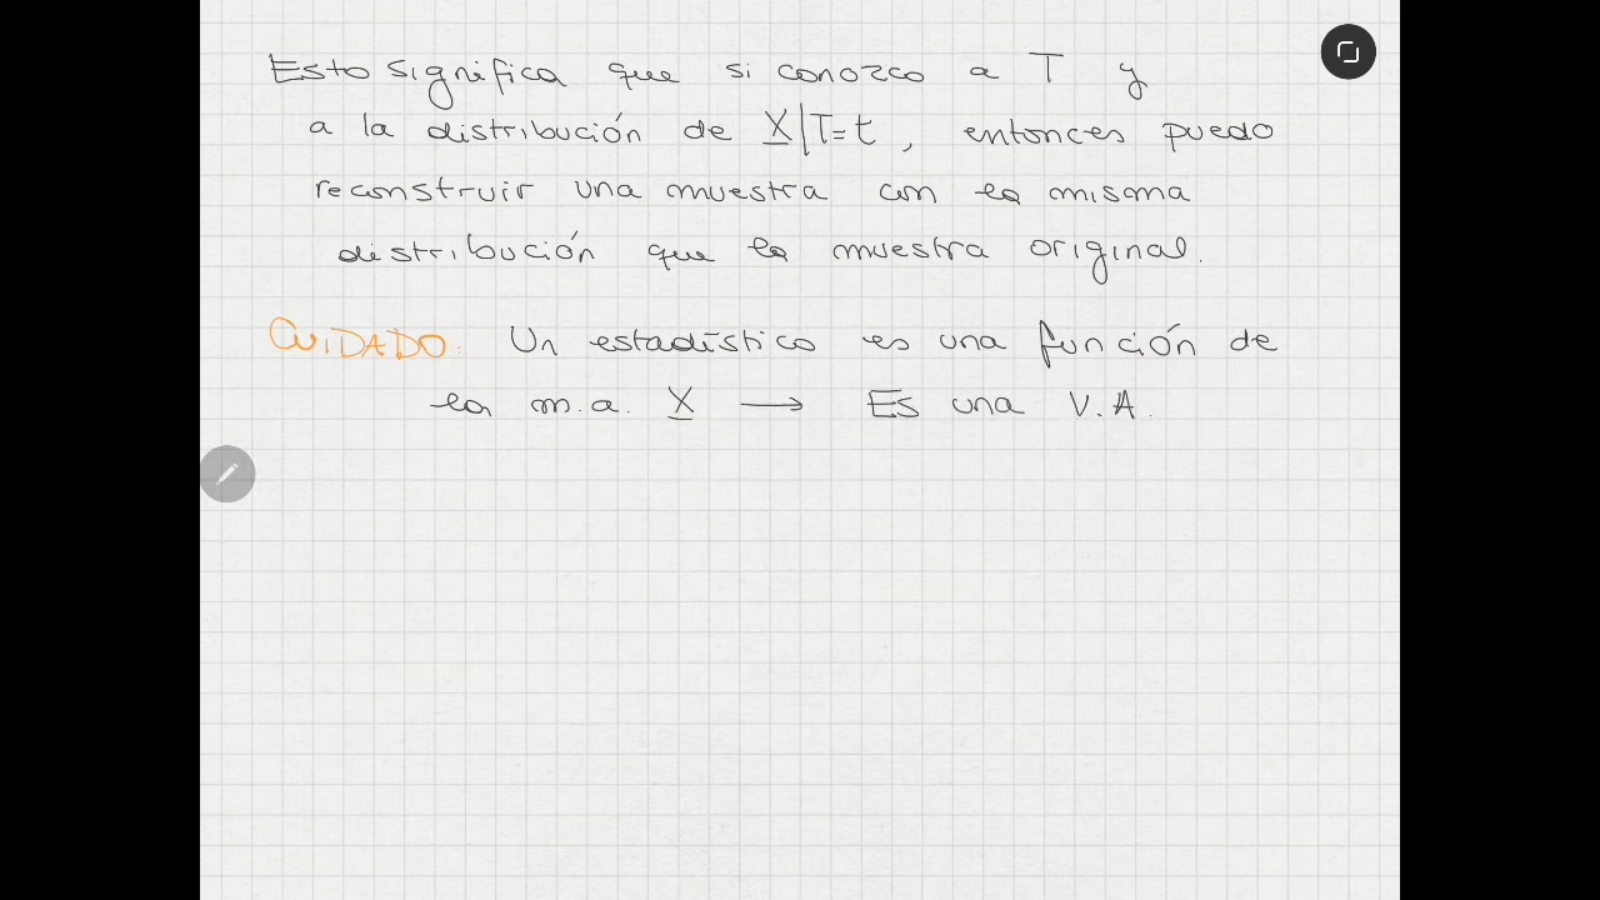 Esto significa que si conozco a T y
a la distribución de X|T=t, entonces puedo
reconstruir una muestra con la misma
distribución que la muestra original.
CUIDADO: Un estadístico es una función de
la m.a. X → Es una V.A.